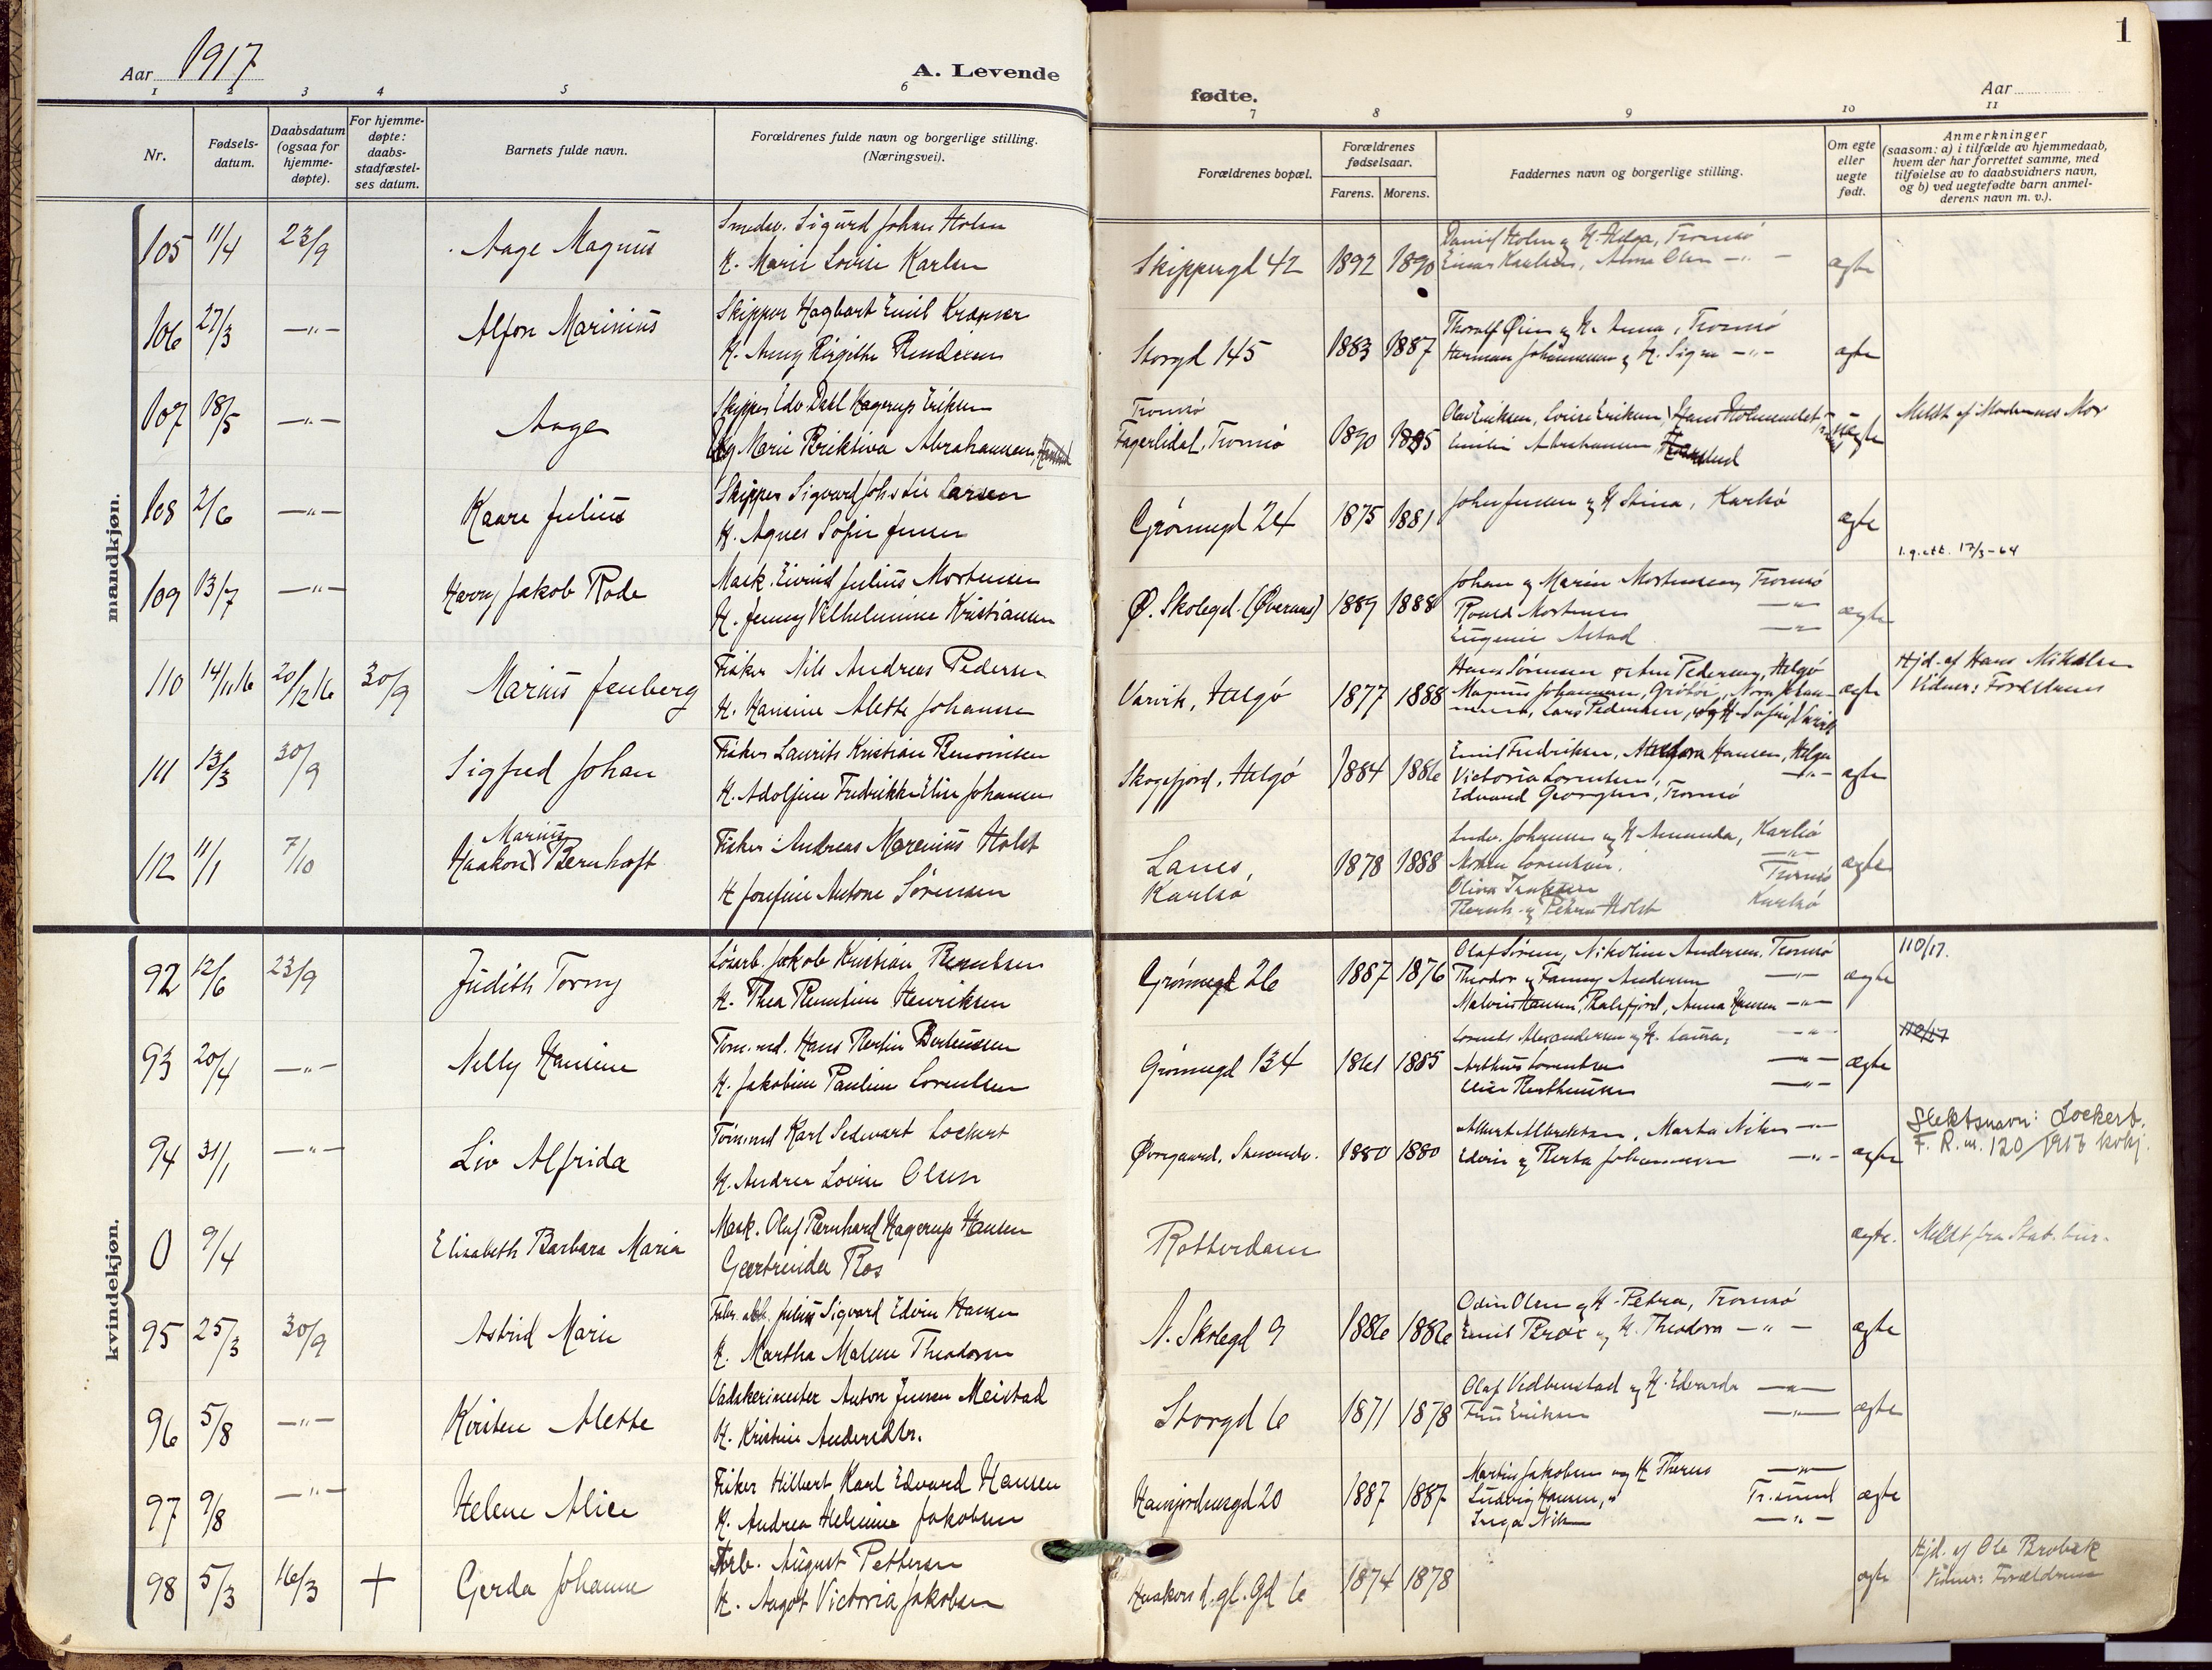 Aar 1917
A. Levende
1 2 3 4 5 6
Nr.
Fødsels-
datum.
Daabsdatum
(ogsaa for
hjemme-
døpte).
For hjemme-
døpte:
daabs-
stadfæstel-
ses datum.
Barnets fulde navn.
Forældrenes fulde navn og borgerlige stilling.
(Næringsvei).
mandkjøn.
105 11/4 23/9 Aage Magnus
Smedsv. Sigurd Johan Holm
H. Marie Lovise Karlsen
106 27/3 —"— Alfon Marinius
Skipper Hagbart Emil Kræmer
H. Anny Birgithe
107 18/5 —"— Aage
Skipper Edv. Dahl Hagerup Eriksen
Marie Briktiva Abrahamsen,
108 2/6 —"— Kaare Julius
Skipper Sigvard Larsen
H. Agnes Sofie Jensen
109 13/7 —"— Harry Jakob Rode
Mask. Eivind Julius Mortensen
H. Jenny Vilhelmine Kristiansen
110 14/11 16 20/12 16 30/9 Marius Jenberg
Fisker Nils Andreas Pedersen
H. Hansine Alette Johansen
111 13/3 30/9 Sigfred Johan
Fisker Laurits Kristian Benonisen
H. Adolfine Fredrikke Elise Johansen
112 11/1 7/10 Haakon Marius Bernhoft
Fisker Andreas Marenius Holst
H Josefine Antone Sørensen
kvindekjøn.
92 12/6 23/9 Judith Torny
Jakob Kristian Berntsen
H. Thea Henriksen
93 20/4 —"— Nelly Hansine
Tøm.md. Hans Bertin Bertheussen
H. Jakobine Pauline Lorentsen
94 31/1 —"— Liv Alfrida
Tøm.md Karl Sedevart Lockert
H. Andrea Lovise Olsen
0 9/4 Elisabeth Barbara Maria
Mask. Oluf Bernhard Hagerup Hansen
Geertruida Ros
95 25/3 30/9 Astrid Marie
Julius Sigvard Edvin Hansen
H. Martha Malene Theodorsen
96 5/8 —"— Kirsten Alette
Anton Jensen Meistad
H. Kristine
97 9/8 —"— Helene Alice
Fisker Hilbert Karl Edvard Hansen
H. Andrea Helmine Jakobsen
98 5/3 16/3 + Gerda Johanne
Arb. August Pettersen
H. Aagot Victoria Jakobsen
1
fødte.
Aar
7 8 9 10 11
Forældrenes bopæl.
Forældrenes
fødselsaar.
Farens. Morens.
Faddernes navn og borgerlige stilling.
Om egte
eller
uegte
født.
Anmerkninger
(saasom: a) i tilfælde av hjemmedaab,
hvem der har forrettet samme, med
tilføielse av to daabsvidners navn,
og b) ved uegtefødte barn anmel-
derens navn m. v.).
Skippergd 42 1892 1890 Daniel Holm og H. Helga, Tromsø
Einar Karlsen, Alma Olsen —"— ægte
Storgd 145 1883 1887 Thoralf og H. Anna, Tromsø
Herman Johannessen og H. Signe —"— ægte
Tromsø
Fagerlidal, Tromsø 1890 1895 Olav Eriksen, Lovise Eriksen,
Emilie Abrahamsen, uegte
Meldt af Moderens Mor
Grønnegd 24 1875 1881 Johan Jensen og H Stina, Karlsø ægte
Ø. Skolegd. 1889 1888 Johan og Marie Mortensen, Tromsø
Roald Mortensen —"—
Eugenie Astad —"— ægte
1.g.att. 17/3-64
Varvik, Helgø 1877 1888 Hans Sørensen Pedersen, Helgø
Magnus Johannesen,
Lars Pedersen, ægte
Hjd. af Hans Mikalsen
Vidner: Forældrene
Skogsfjord, Helgø 1884 1886 Emil Fredriksen, Hansen, Helgø
Victoria Lorentsen, —"—
Edvard Tromsø ægte
Lanes,
Karlsø 1878 1888 Johansen og H Amanda, Karlsø
Lorentsen —"—
Oliva Tromsø
Bernh. og Petra Holst Karlsø ægte
Grønnegd 26 1887 1876 Olaf Nikoline Andersen, Tromsø
Theodor og Fanny Andersen —"—
Hansen, Anna Hansen —"— ægte
110/17.
Grønnegd 134 1861 1885 Alexandersen og H. Laura, —"—
Arthur Lorentsen —"—
Bertheussen —"— ægte
110/17
Øvregaard, 1880 1880 Albert Albrektsen, Marta —"—
Edvin og Berta Johannessen —"— ægte
Slektsnavn: Lockert.
F. R. nr. 120/1917
Rotterdam ægte. Meldt fra Stat. bur.
N. Skolegd 9 1886 1886 Odin Olsen og H. Petra, Tromsø
Emil Brox og H. Theodora —"— ægte
Storgd 6 1871 1878 Olaf og H. Edvarda —"—
Fru Eriksen —"— ægte
20 1887 1887 Martin Jakobsen og H —"—
Ludvig Hansen, Tr.sund
Inga —"— ægte
Haakon d. gl. Gd 6 1874 1878 ægte
Hjd. af Ole Brobak
Vidner: Forældrene